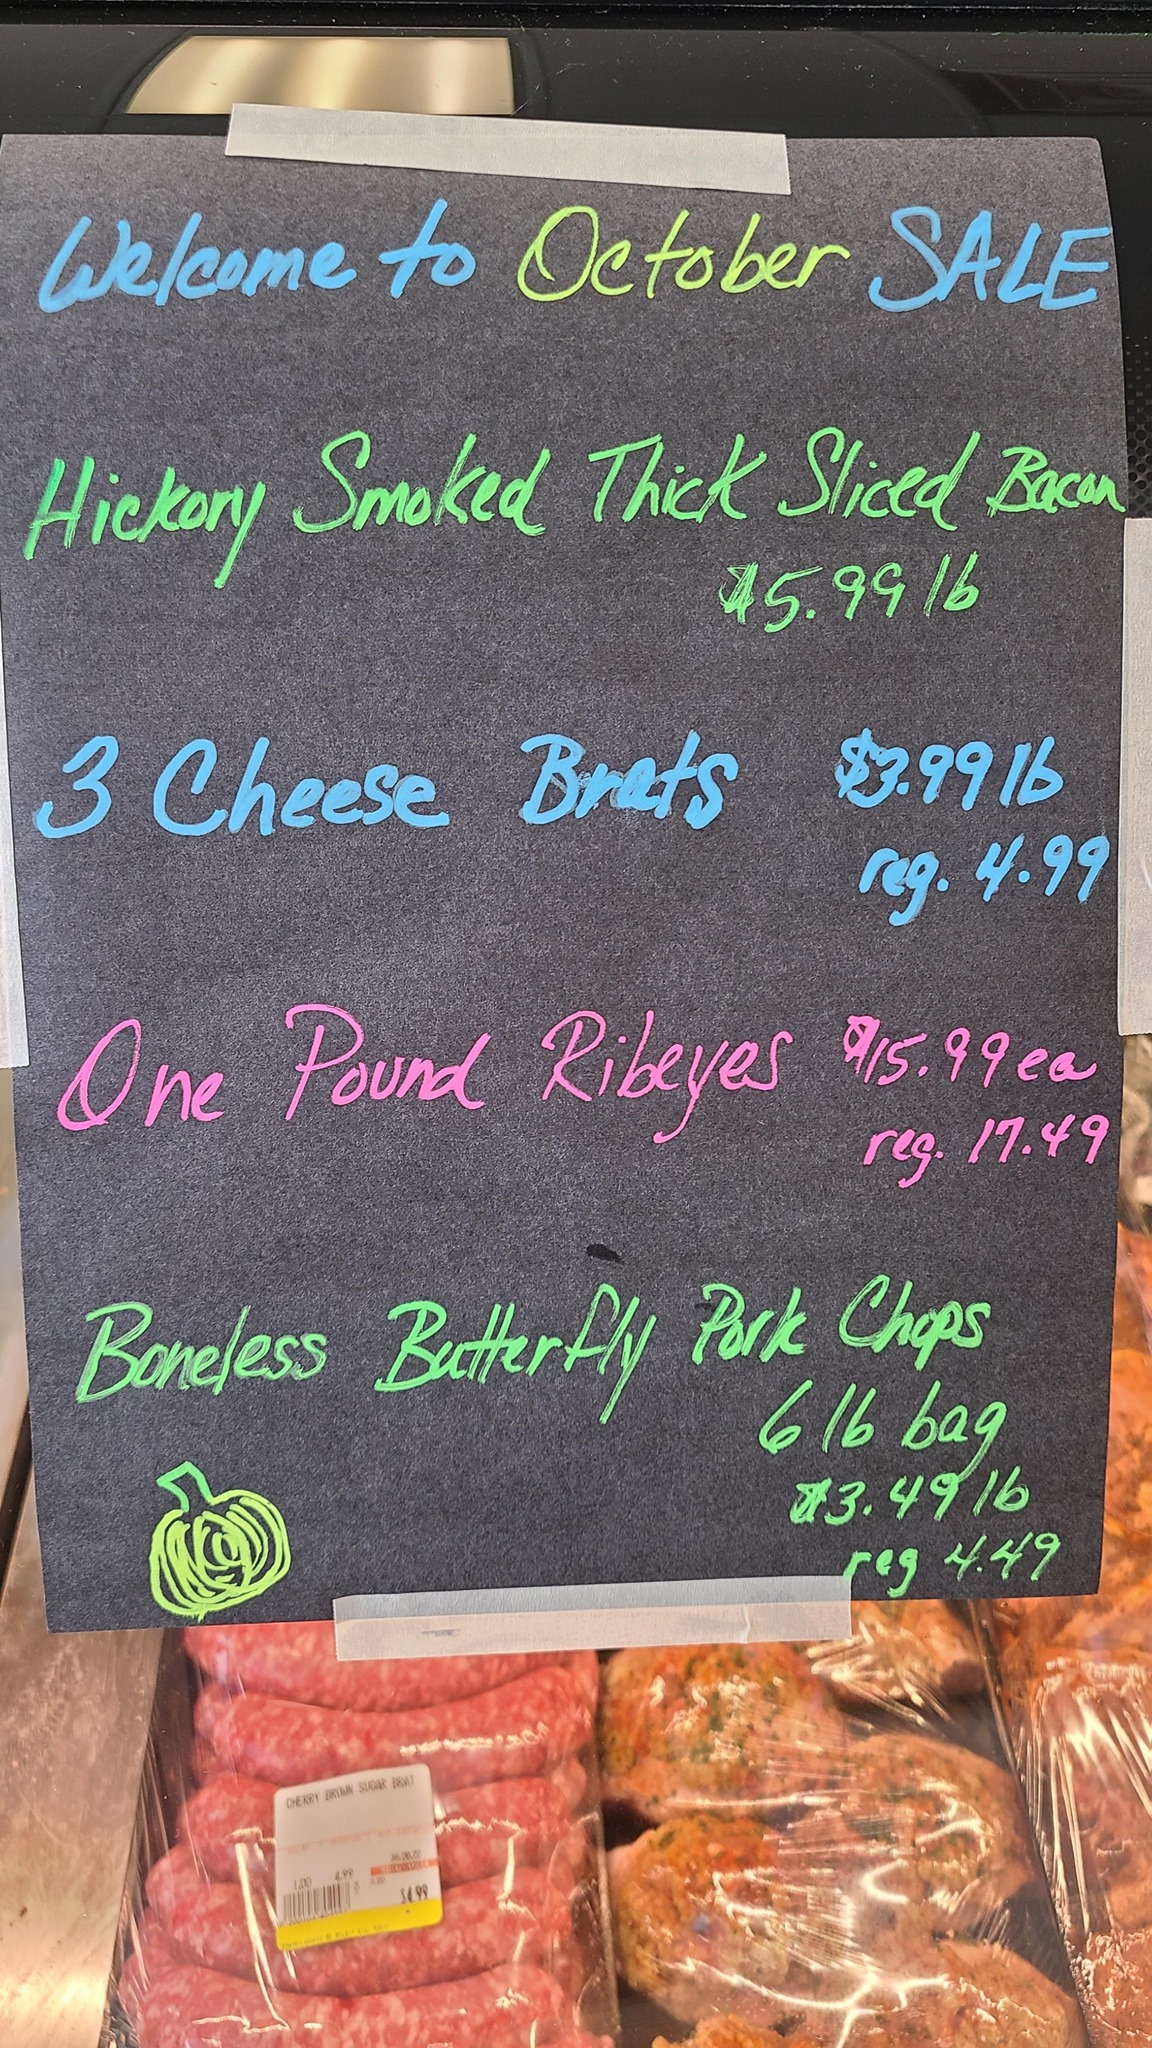 Welcome to October SALE
Hickory Smoked Thick Sliced Bacon
$5.99 lb
3 Cheese Brats $3.99 lb
reg. 4.99
One Pound Ribeyes $15.99 ea
reg. 17.49
Boneless Butterfly Pork Chops
6 lb bag
$3.49 lb
reg 4.49
CHERRY BROWN SUGAR BRAT
1.00 4.99
$4.99